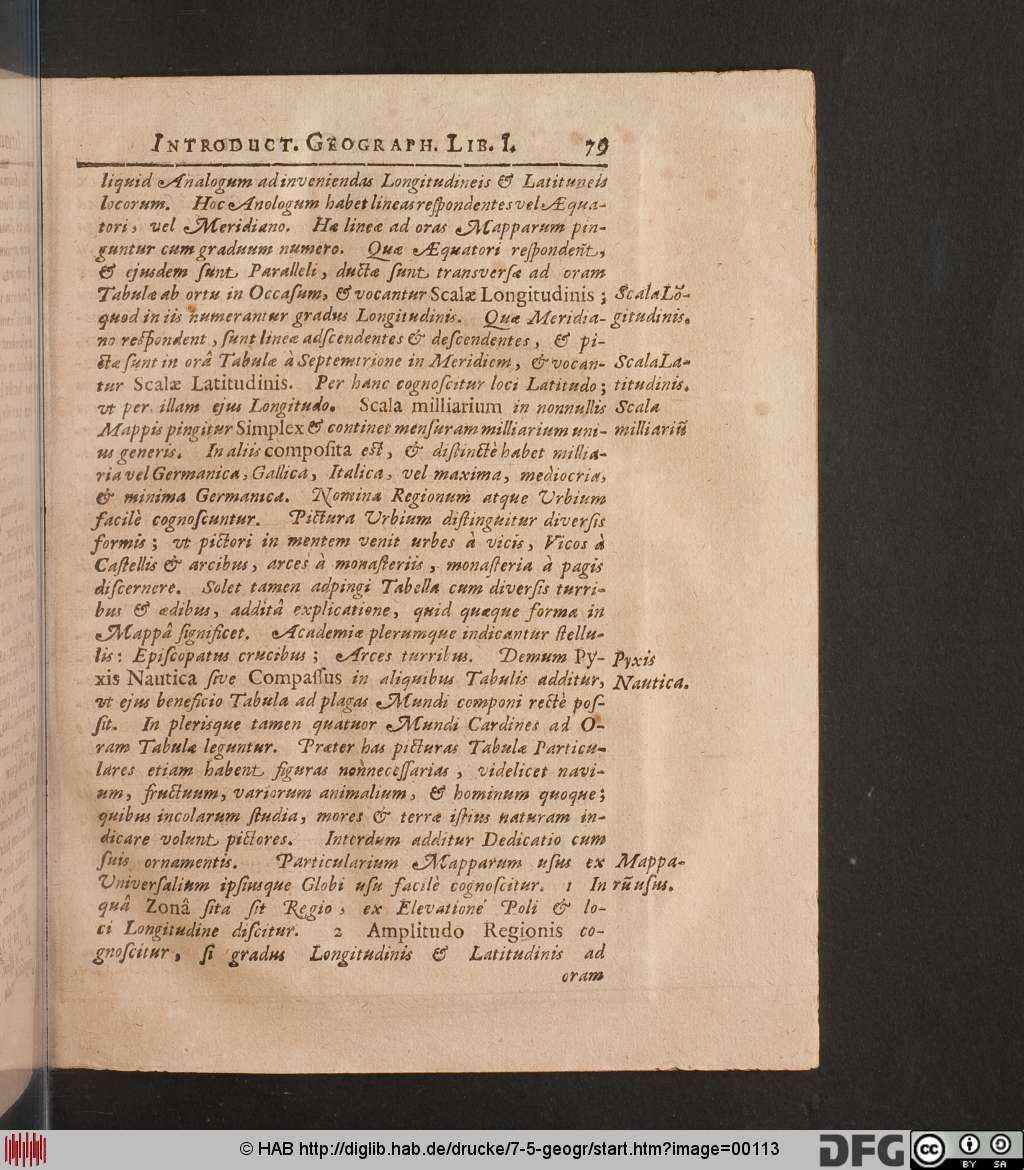 INTRODUCT. GEOGRAPH. LIB. I. 79
liquid Analogum ad inveniendas Longitudineis & Latituneis
locorum. Hoc Anologum habet lineas respondentes vel Æqua-
tori, vel Meridiano. Hæ lineæ ad oras Mapparum pin-
guntur cum graduum numero. Quæ Æquatori respondent,
& ejusdem sunt Paralleli, ductæ sunt transversæ ad oram
Tabulæ ab ortu in Occasum, & vocantur Scalæ Longitudinis; Scala Lō-
quod in iis numerantur gradus Longitudinis. Quæ Meridia- gitudinis.
no respondent, sunt lineæ adscendentes & descendentes, & pi-
ctæ sunt in orâ Tabulæ à Septemtrione in Meridiem, & vocan- Scala La-
tur Scalæ Latitudinis. Per hanc cognoscitur loci Latitudo; titudinis.
vt per illam ejus Longitudo. Scala milliarium in nonnullis Scala
Mappis pingitur Simplex & continet mensuram milliarium uni- milliariū
us generis. In aliis composita est, & distinctè habet millia-
ria vel Germanica, Gallica, Italica, vel maxima, mediocria,
& minima Germanica. Nomina Regionum atque Urbium
facilè cognoscuntur. Pictura Urbium distinguitur diversis
formis; vt pictori in mentem venit urbes à vicis, Vicos à
Castellis & arcibus, arces à monasteriis, monasteria à pagis
discernere. Solet tamen adpingi Tabella cum diversis turri-
bus & ædibus, additâ explicatione, quid quæque forma in
Mappâ significet. Academiæ plerumque indicantur stellu-
lis: Episcopatus crucibus; Arces turribus. Demum Py- Pyxis
xis Nautica sive Compassus in aliquibus Tabulis additur, Nautica.
vt ejus beneficio Tabula ad plagas Mundi componi rectè pos-
sit. In plerisque tamen quatuor Mundi Cardines ad O-
ram Tabulæ leguntur. Præter has picturas Tabulæ Particu-
lares etiam habent figuras non necessarias, videlicet navi-
um, fructuum, variorum animalium, & hominum quoque;
quibus incolarum studia, mores & terræ istius naturam in-
dicare volunt pictores. Interdum additur Dedicatio cum
suis ornamentis. Particularium Mapparum usus ex Mappa-
Universalium ipsiusque Globi usu facilè cognoscitur. 1 In rū usus.
quâ Zonâ sita sit Regio, ex Elevatione Poli & lo-
ci Longitudine discitur. 2 Amplitudo Regionis co-
gnoscitur, si gradus Longitudinis & Latitudinis ad
oram
© HAB http://diglib.hab.de/drucke/7-5-geogr/start.htm?image=00113
DFG cc BY SA